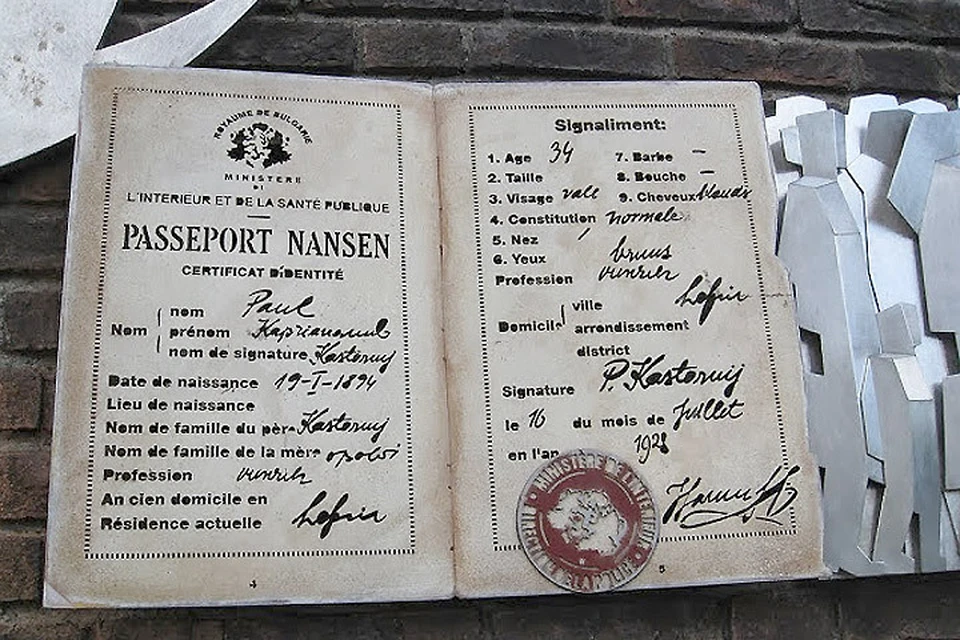 ROYAUME DE BULGARIE
MINISTERE
DE
L'INTERIEUR ET DE LA SANTÉ PUBLIQUE
PASSEPORT NANSEN
CERTIFICAT D'IDENTITÉ
Nom
nom Paul
prénom
nom de signature Kasternij
Date de naissance 19-I-1894
Lieu de naissance
Nom de famille du père Kasternij
Nom de famille de la mère
Profession
An cien domicile en
Résidence actuelle
4
Signaliment:
1. Age 34 7. Barbe –
2. Taille 8. Bouche –
3. Visage 9. Cheveux
4. Constitution normale
5. Nez
6. Yeux
Profession
Domicile
ville
arrondissement
district
Signature P. Kasternij
le 16 du mois de Juillet
en l'an 1928
MINISTÈRE DE L'INTERIEUR
5